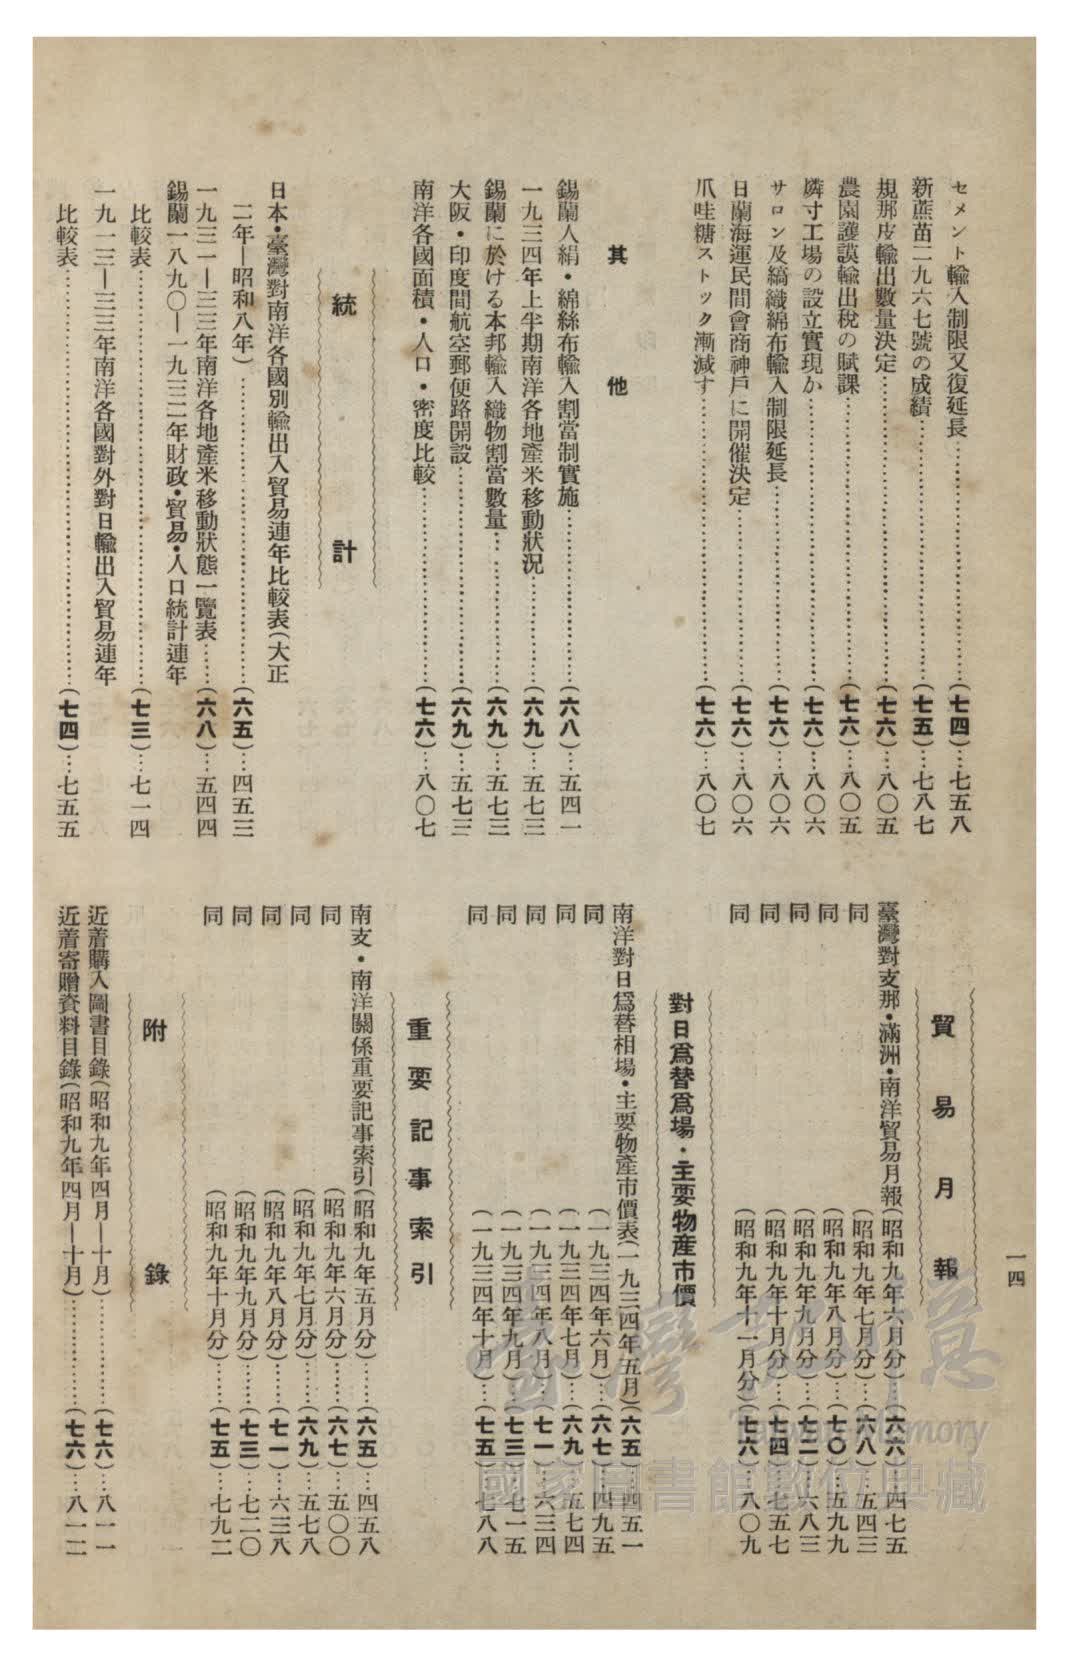 一四
セメント輸入制限又復延長………(七四)…七五八
新蔗苗二九六七號の成績………(七五)…七八七
規那皮輸出數量決定………(七六)…八〇五
農園護謨輸出稅の賦課………(七六)…八〇五
燐寸工場の設立實現か………(七六)…八〇六
サロン及縞織綿布輸入制限延長………(七六)…八〇六
日蘭海運民間會商神戶に開催決定………(七六)…八〇六
爪哇糖ストック漸減す………(七六)…八〇七
其他
錫蘭人絹・綿絲布輸入割當制實施………(六八)…五四一
一九三四年上半期南洋各地產米移動狀況………(六九)…五七三
錫蘭に於ける本邦輸入織物割當數量………(六九)…五七三
大阪・印度間航空郵便路開設………(六九)…五七三
南洋各國面積・人口・密度比較………(七六)…八〇七
統計
日本・臺灣對南洋各國別輸出入貿易連年比較表(大正
二年—昭和八年)………(六五)…四五三
一九三一—三三年南洋各地產米移動狀態一覽表……(六八)…五四四
錫蘭一八九〇—一九三二年財政・貿易・人口統計連年
比較表………(七三)…七一四
一九一三—三三年南洋各國對外對日輸出入貿易連年
比較表………(七四)…七五五
貿易月報
臺灣對支那・滿洲・南洋貿易月報(昭和九年六月分)…(六六)…四七五
同(昭和九年七月分)…(六八)…五四三
同(昭和九年八月分)…(七〇)…五九九
同(昭和九年九月分)…(七二)…六八三
同(昭和九年十月分)…(七四)…七五七
同(昭和九年十一月分)(七六)…八〇九
對日爲替爲場・主要物產市價
南洋對日爲替相場・主要物產市價表(一九三四年五月)(六五)…四五一
同(一九三四年六月)…(六七)…四九五
同(一九三四年七月)…(六九)…五七四
同(一九三四年八月)…(七一)…六三四
同(一九三四年九月)…(七三)…七一五
同(一九三四年十月)…(七五)…七八八
重要記事索引
南支・南洋關係重要記事索引(昭和九年五月分)……(六五)…四五八
同(昭和九年六月分)……(六七)…五〇〇
同(昭和九年七月分)……(六九)…五七八
同(昭和九年八月分)……(七一)…六三八
同(昭和九年九月分)……(七三)…七二〇
同(昭和九年十月分)……(七五)…七九二
附錄
近着購入圖書目錄(昭和九年四月—十月)………(七六)…八一一
近着寄贈資料目錄(昭和九年四月—十月)………(七六)…八一二
臺灣記憶
Taiwan Memory
國家圖書館數位典藏